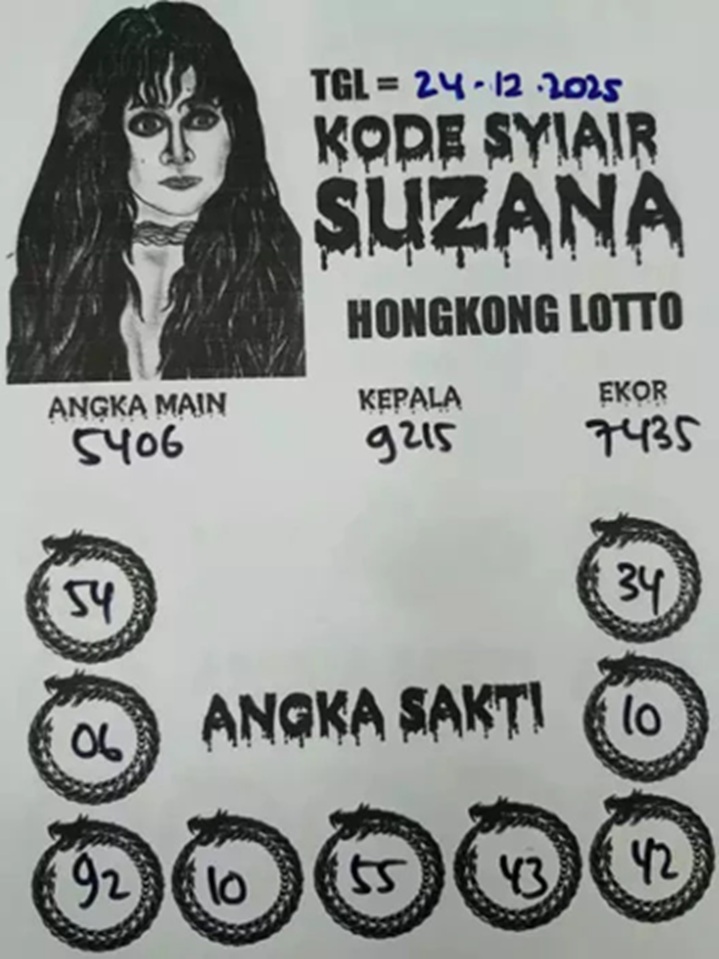 TGL = 24-12-2025
KODE SYIAIR
SUZANA
HONGKONG LOTTO
ANGKA MAIN KEPALA EKOR
5406 9215 7435
54 34
06 ANGKA SAKTI 10
92 10 55 43 42